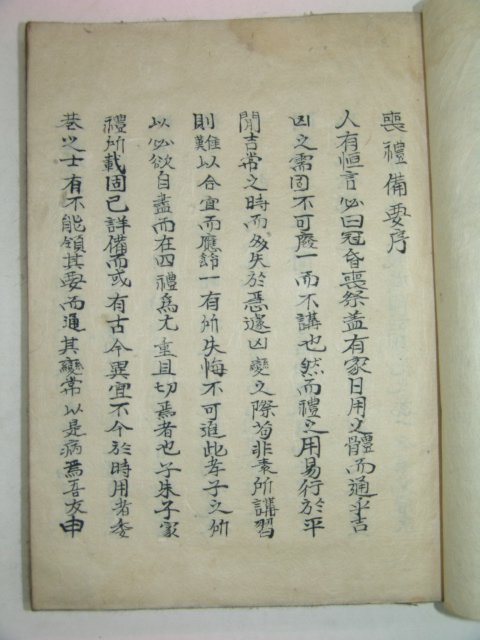 喪禮備要序
人有恒言必曰冠昏喪祭盖有家日用之體而通乎吉
凶之需固不可廢一而不講也然而禮之用易行於平
閒吉常之時而多失於悤遽凶變之際苟非素所講習
則難以合宜而應節一有所失悔不可追此孝子之所
以必欲自盡而在四禮爲尤重且切焉者也子朱子家
禮所載固已詳備而或有古今異宜不合於時用者委
巷之士有不能領其要而通其變常以是病焉吾友申